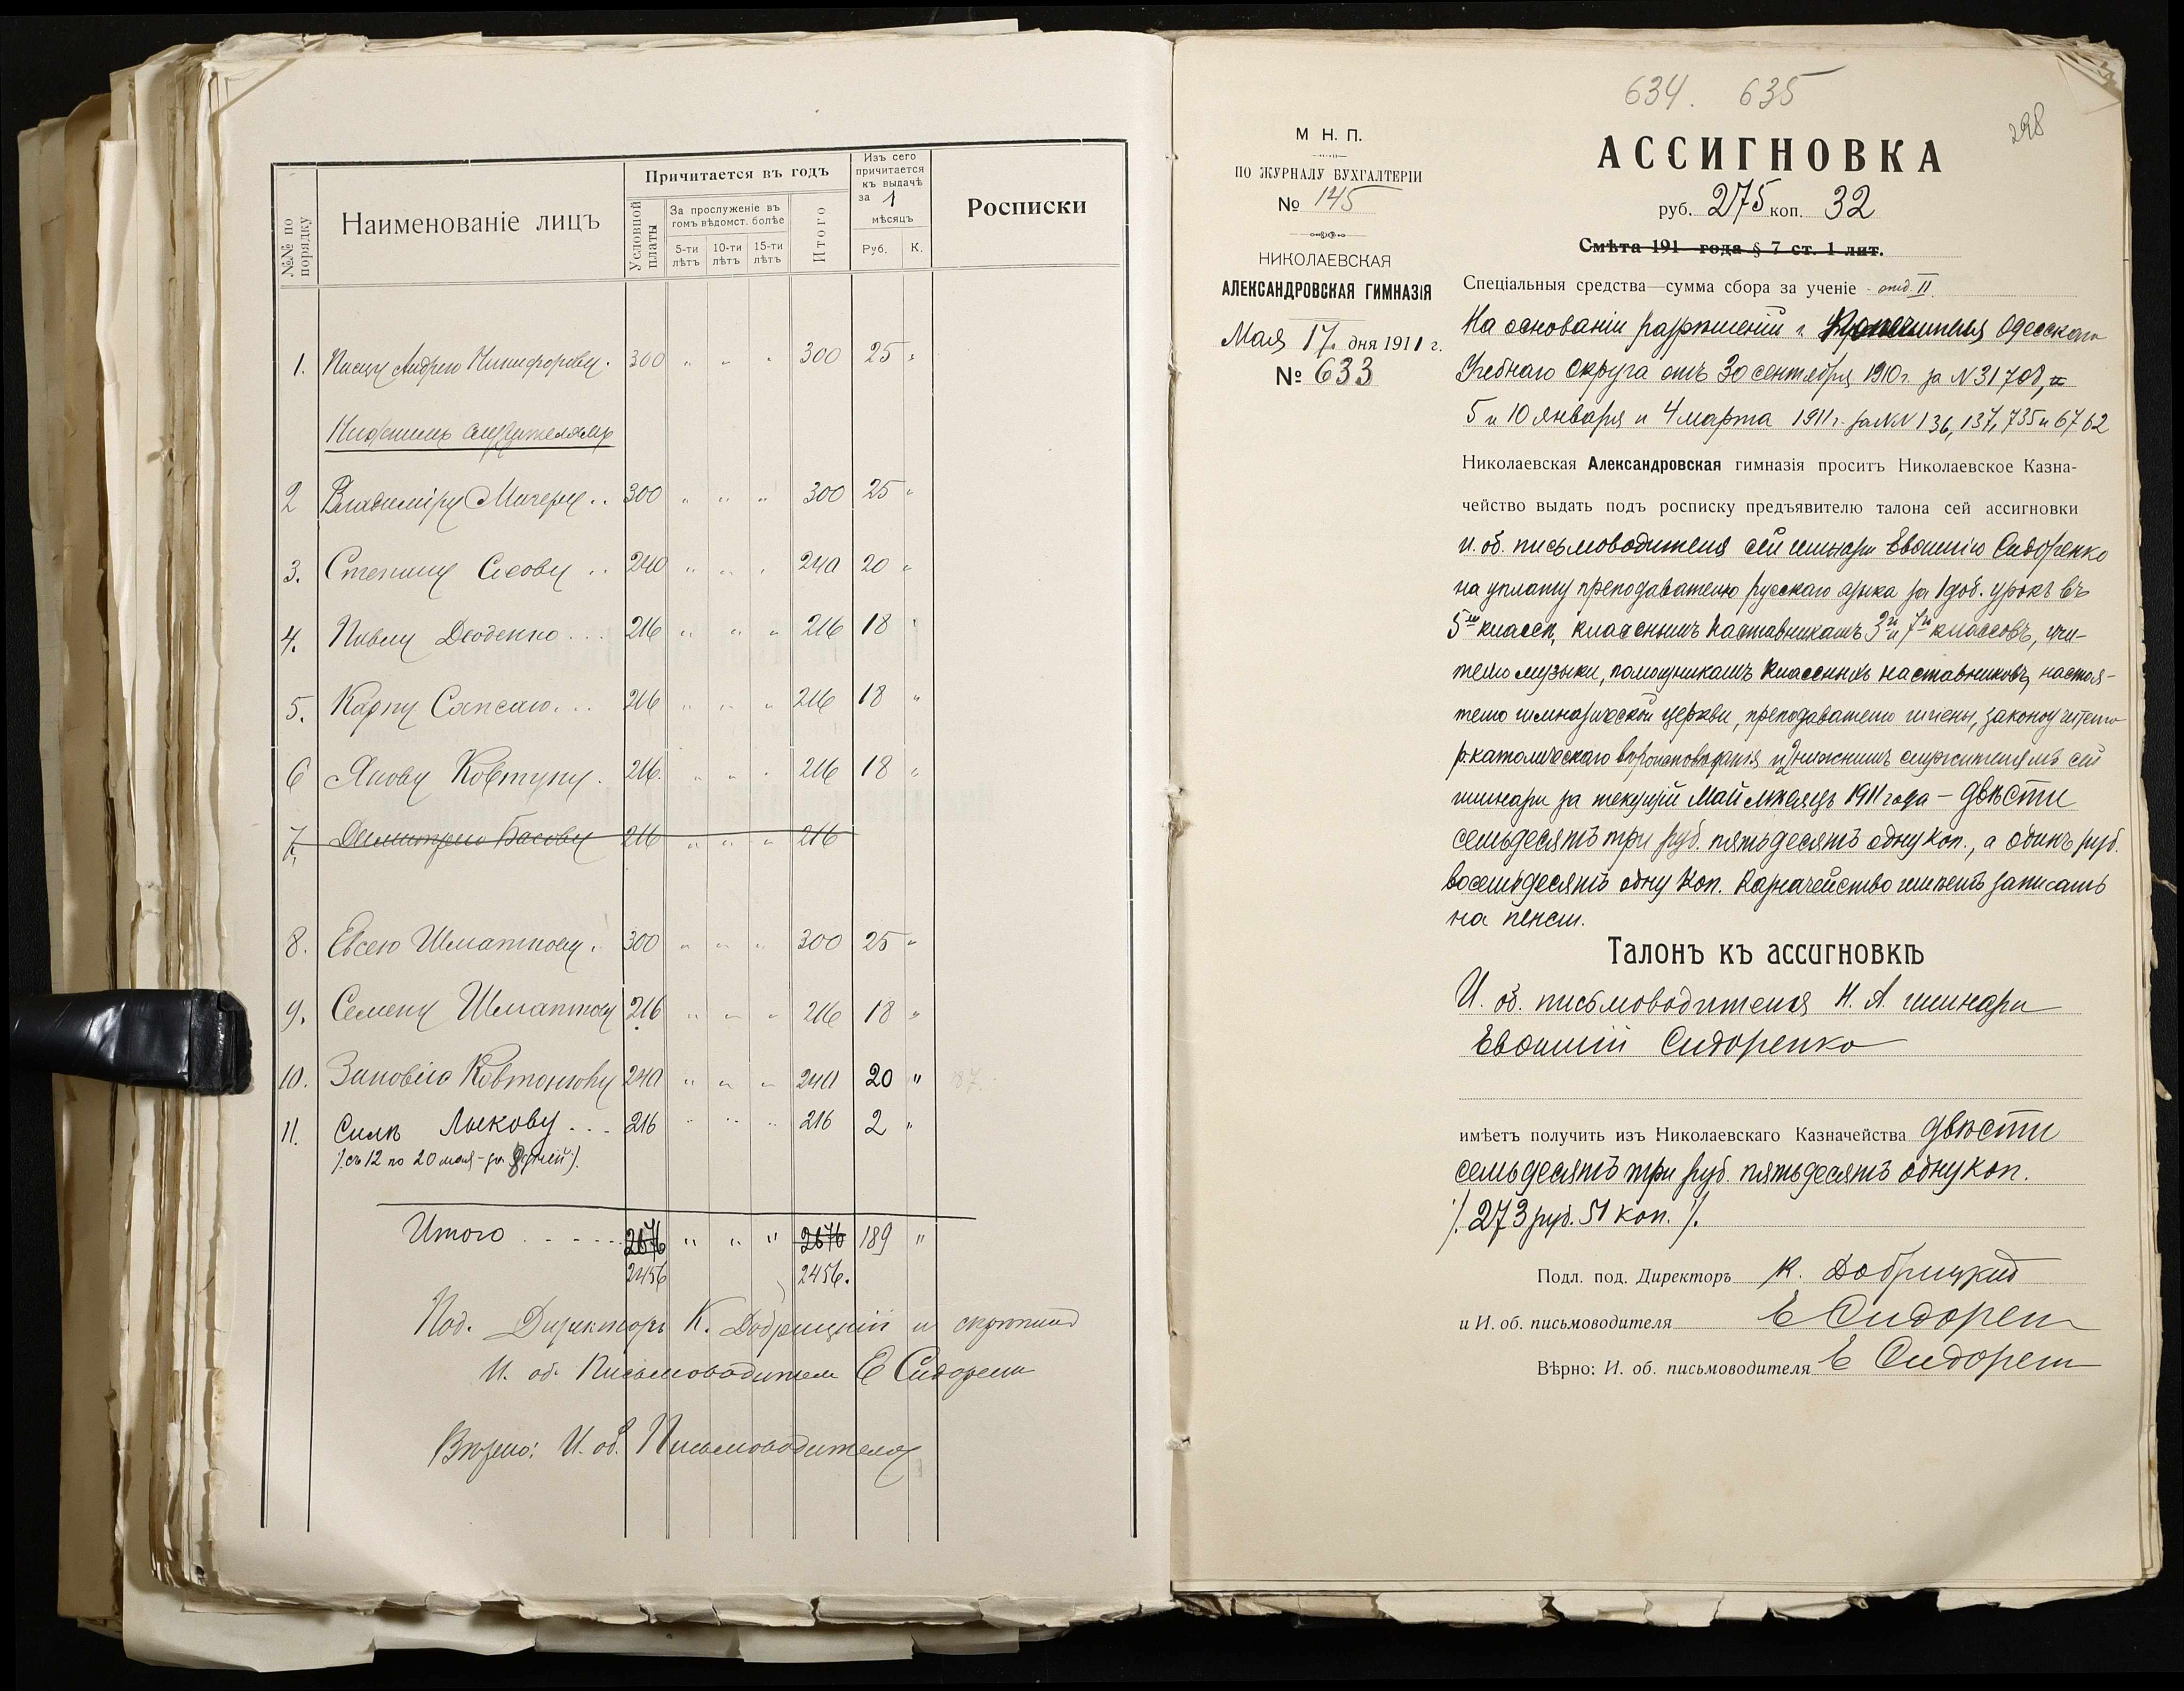 №№ по порядку
Наименованіе лицъ
Причитается въ годъ
Условной платы
За прослуженіе въ
гомъ вѣдомст. болѣе
5-ти лѣтъ
10-ти лѣтъ
15-ти лѣтъ
Итого
Изъ сего
причитается
къ выдачѣ
за 1
мѣсяцъ
Руб. К.
Росписки
1. Писцу Андрею Никифорову. 300 " " " 300 25 "
Низшимъ служителямъ
2 Владиміру Мачеру .. 300 " " " 300 25 "
3. Степану Сѣову .. 240 " " " 240 20 "
4. Павлу Деоденко ... 216 " " " 216 18 "
5. Карпу ... 216 " " " 216 18 "
6 Якову Ковтуну. 216. " " " 216 18 "
7. Димитрію Басову 216 " " " 216
8. Евсею Шматкову. 300 " " " 300 25 "
9. Семену Шматкову 216 " " " 216 18 "
10. Зиновію 240 " " " 240 20 "
11. Силѣ Лыкову ... 216 " " " 216 2 "
/. съ 12 по 20 мая - за 8 дней ./.
Итого . - - - . 2676 " " " 2676 189 "
2456 2456.
Под. Директоръ К. Добрицкій и скрѣпилъ
И. об. Письмоводителя Е Сидорен
Вѣрно: И. об. Письмоводителя
634. 635
298
М Н. П.
ПО ЖУРНАЛУ БУХГАЛТЕРІИ
№ 145
НИКОЛАЕВСКАЯ
АЛЕКСАНДРОВСКАЯ ГИМНАЗІЯ
Мая 17. дня 1911 г.
№ 633
АССИГНОВКА
руб. 275 коп. 32
Смѣта 191 года § 7 ст. 1 лит.
Спеціальныя средства—сумма сбора за ученіе - отд. II.
На основаніи разрѣшеній г. Попечителя Одесскаго
Учебнаго Округа отъ 30 сентября 1910 г. за N 31708, и
5 и 10 января и 4 марта 1911 г. за NN 136, 137, 735 и 6762
Николаевская Александровская гимназія проситъ Николаевское Казна-
чейство выдать подъ росписку предъявителю талона сей ассигновки
и. об. письмоводителя сей гимназіи Евфимію Сидоренко
на уплату преподавателю русскаго языка за 1 доб. урокъ въ
5мъ классѣ, класснымъ наставникамъ 3го и 7го классовъ, учи-
телю музыки, помощникамъ классныхъ наставниковъ, настоя-
телю гимназической церкви, преподавателю гигіены, законоучителю
р.католическаго вѣроисповѣданія и 2 низшимъ служителямъ сей
гимназіи за текущій Май мѣсяцъ 1911 года — двѣсти
семьдесятъ три руб. пятьдесятъ одну коп., а одинъ руб.
восемьдесятъ одну коп. Казначейство имѣетъ записать
на пенсіи.
Талонъ къ ассигновкѣ
И. об. письмоводителя Н. А. гимназіи
Евфимій Сидоренко
имѣетъ получить изъ Николаевскаго Казначейства двѣсти
семьдесятъ три руб. пятьдесятъ одну коп.
/. 273 руб. 51 коп. /.
Подл. под. Директоръ К. Добрицкій
и И. об. письмоводителя Е Сидорен
Вѣрно: И. об. письмоводителя Е Сидорен